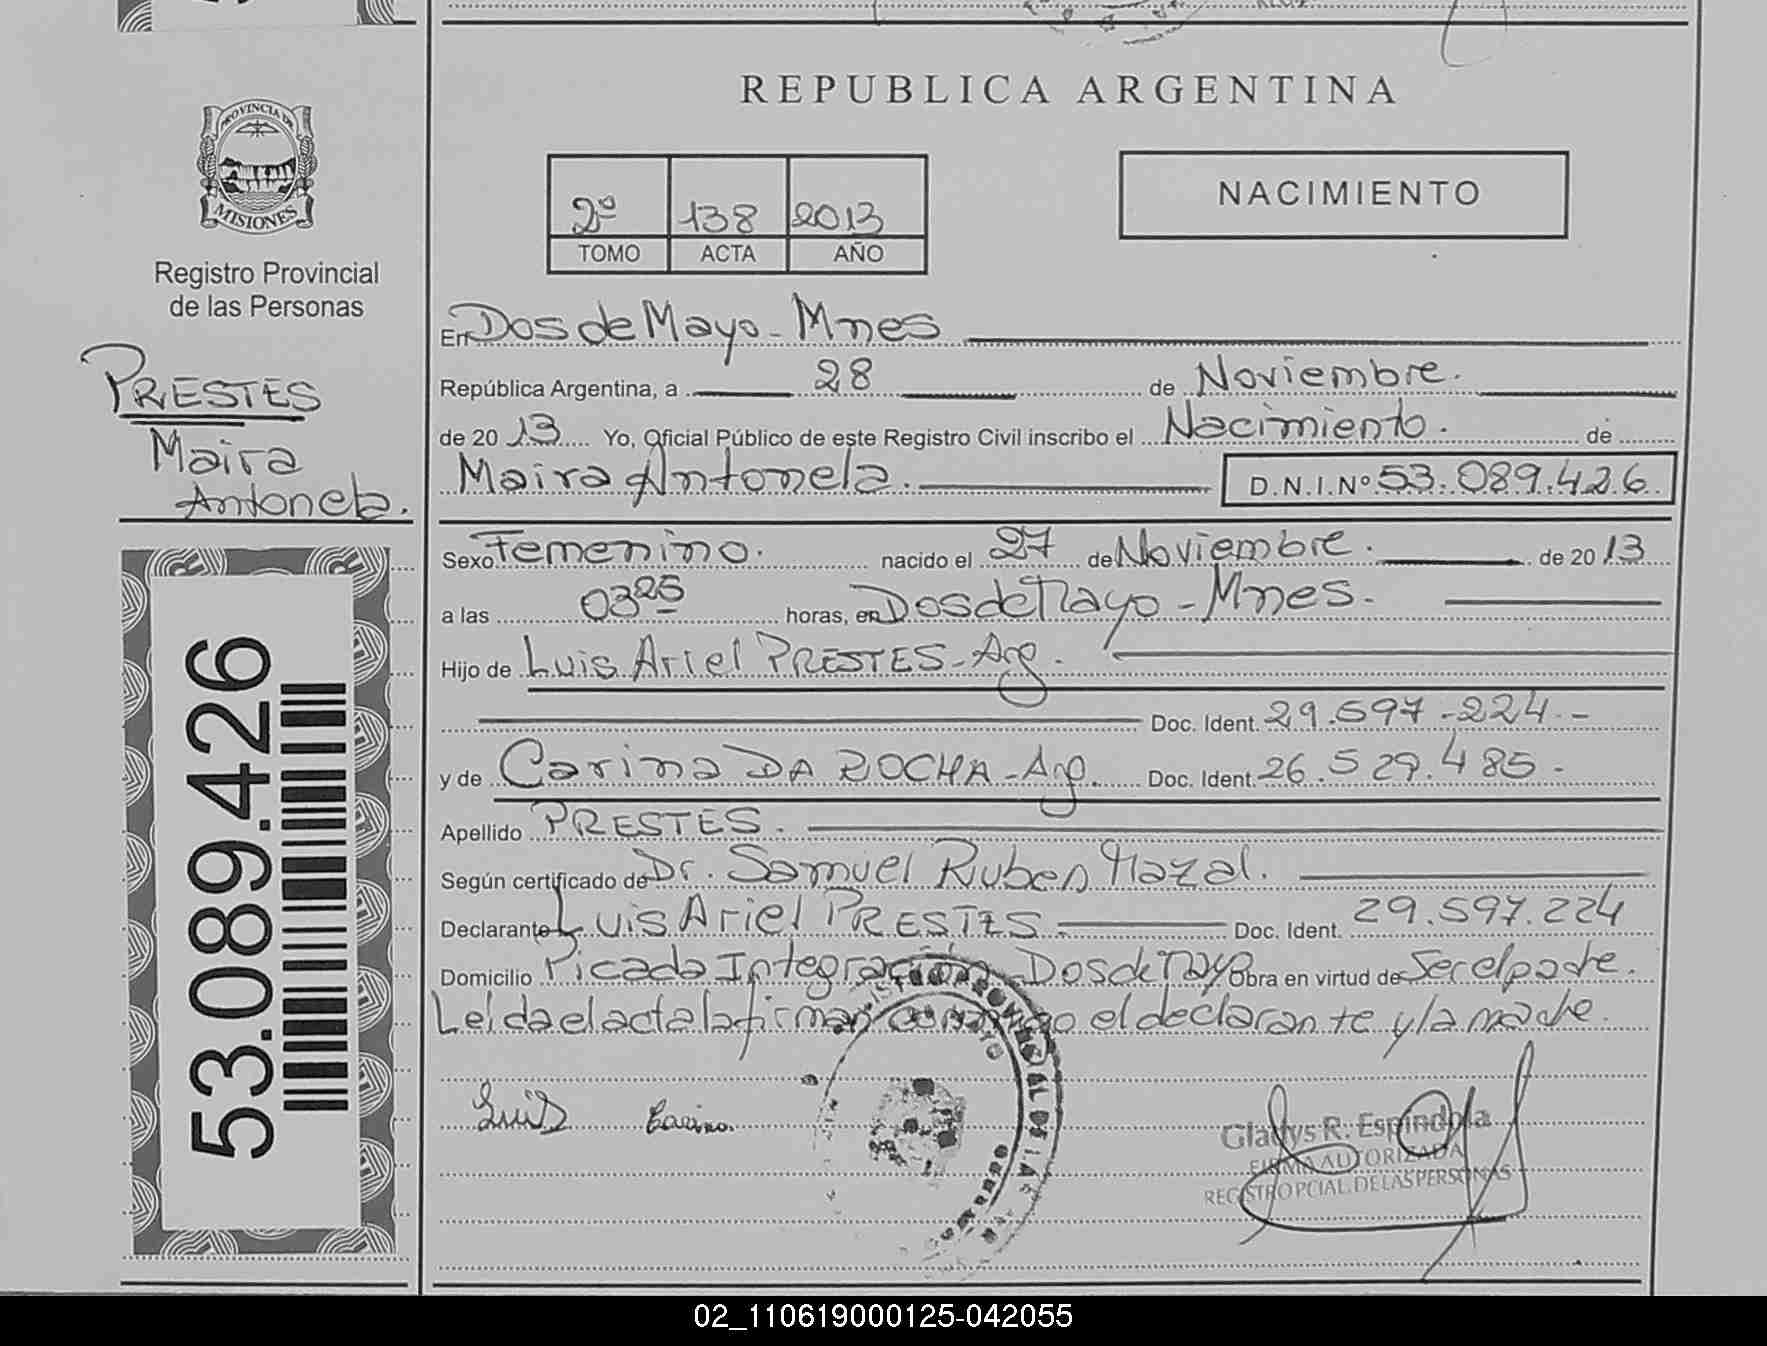 REPUBLICA ARGENTINA
PROVINCIA DE
MISIONES
Registro Provincial
de las Personas
PRESTES
Maira
Antonela.
53.089.426
2º 138 2013
TOMO ACTA AÑO
NACIMIENTO
En Dos de Mayo - Mnes
República Argentina, a 28 de Noviembre.
de 20 13 Yo, Oficial Público de este Registro Civil inscribo el Nacimiento. de
Maira Antonela. D.N.I.Nº 53.089.426
Sexo Femenino. nacido el 27 de Noviembre. de 20 13
a las 03 25 horas, en Dos de Mayo - Mnes.
Hijo de Luis Ariel PRESTES - Arg.
Doc. Ident. 29.597.224.-
y de Carina DA ROCHA - Arg. Doc. Ident. 26.529.485.-
Apellido PRESTES.
Según certificado de Dr. Samuel Ruben Mazal.
Declarante Luis Ariel PRESTES Doc. Ident. 29.597.224
Domicilio Picada Integración Dos de Mayo Obra en virtud de Ser el padre.
Leida el acta la firman conmigo el declarante y la madre.
Luis Carina.
Gladys R. Espindola
FIRMA AUTORIZADA
REGISTRO PCIAL. DE LAS PERSONAS
02_110619000125-042055